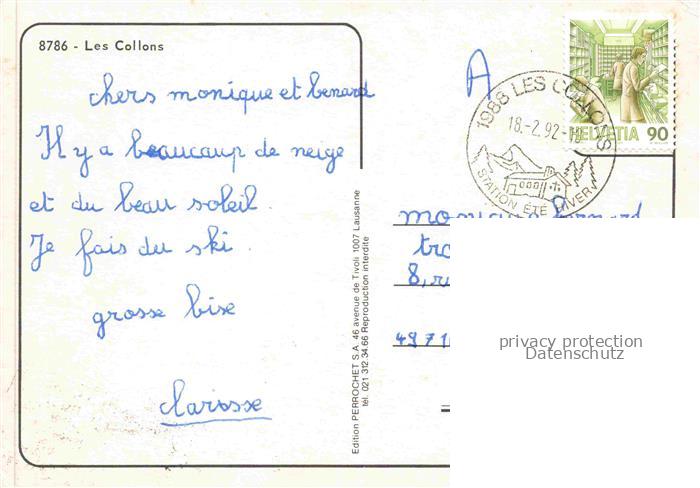 8786 - Les Collons
chers monique et benard
Il y a beaucoup de neige
et du beau soleil.
Je fais du ski.
grosse bise
clarisse
Edition PERROCHET S.A. 46 avenue de Tivoli 1007 Lausanne
tél. 021 312 34 66 Reproduction interdite
A
1988 LES COLLONS
18.-2.92.-
STATION ÉTÉ HIVER
HELVETIA 90
monsieur bernard
8, r
4971
privacy protection
Datenschutz